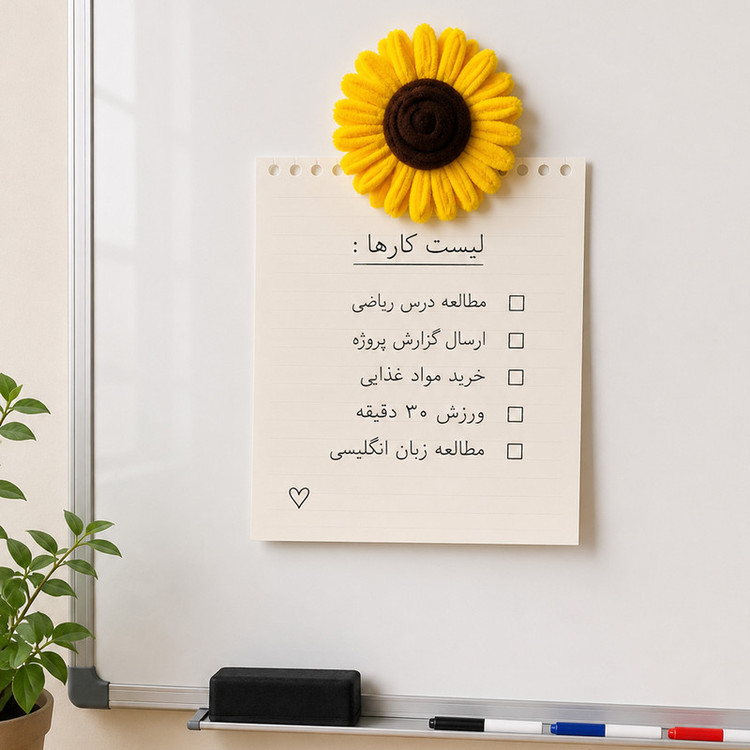 لیست کارها :
مطالعه درس ریاضی
ارسال گزارش پروژه
خرید مواد غذایی
ورزش ۳۰ دقیقه
مطالعه زبان انگلیسی